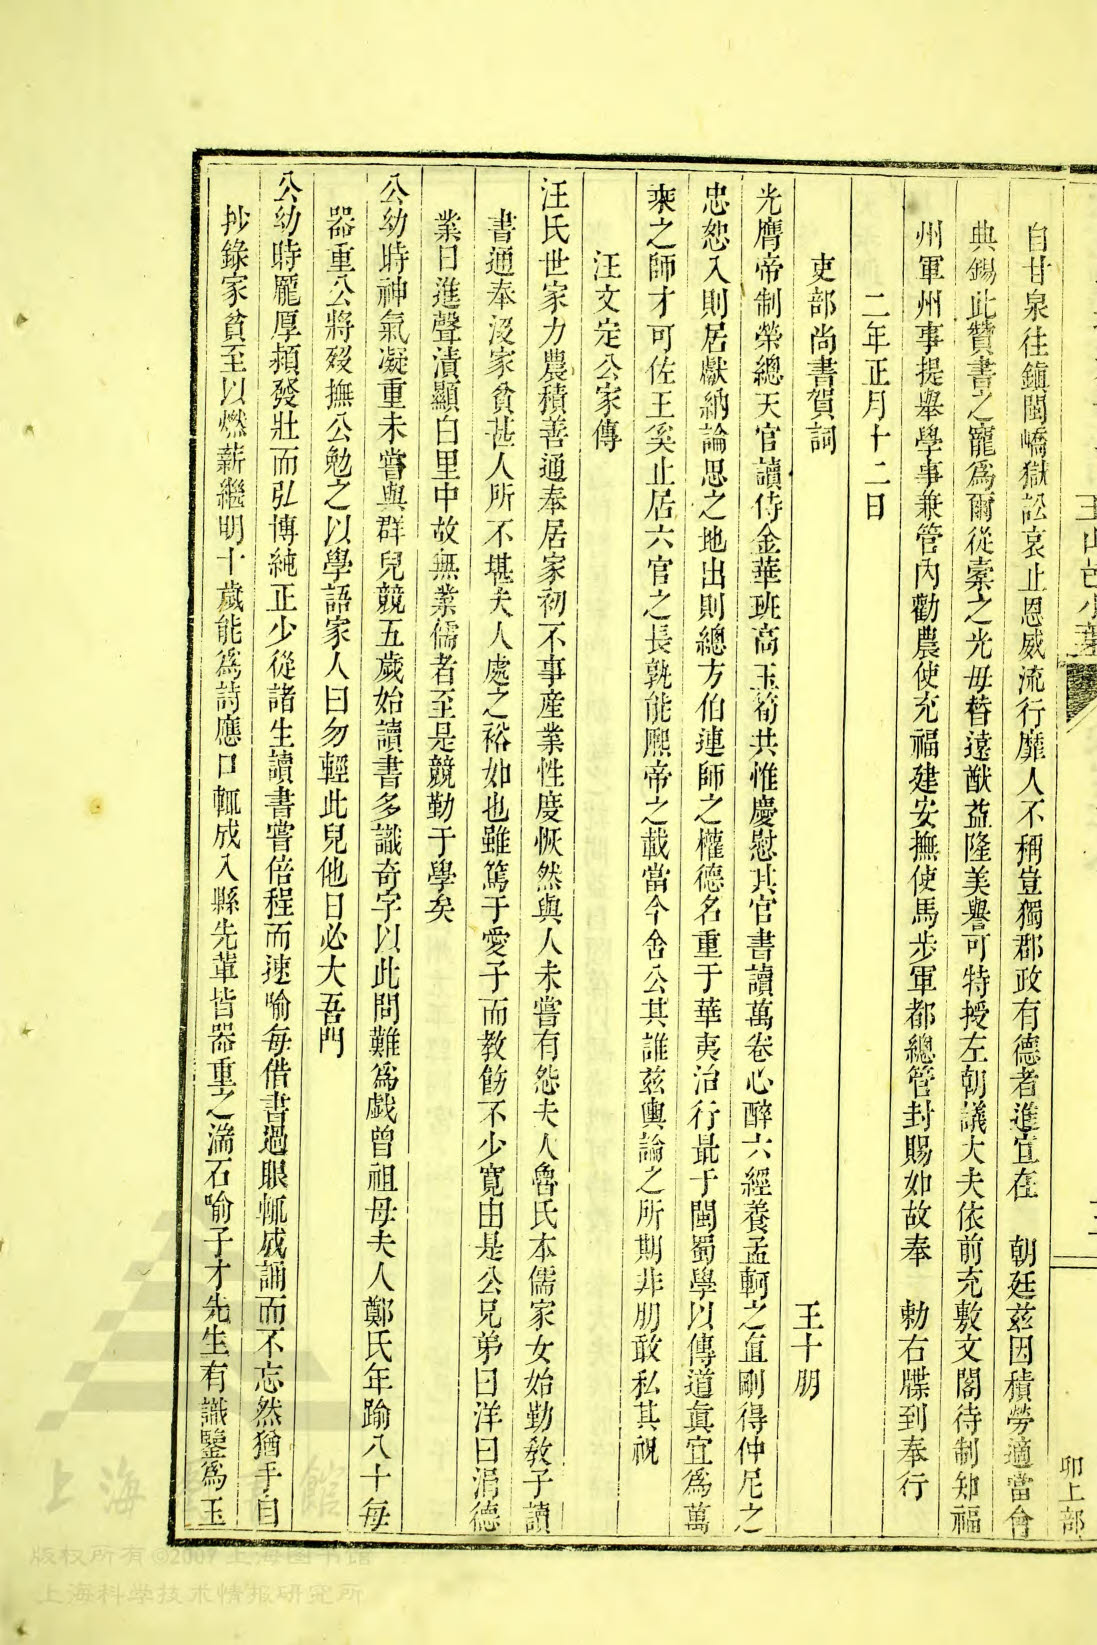 自甘泉往鎮閩嶠獄訟哀止恩威流行靡人不稱豈獨郡政有德者進宜在　朝廷茲因積勞適當會
典錫此贊書之寵爲爾從橐之光毋替遠猷益隆美譽可特授左朝議大夫依前充敷文閣待制知福
州軍州事提舉學事兼管內勸農使充福建安撫使馬步軍都總管封賜如故奉　勅右牒到奉行
二年正月十二日
吏部尚書賀詞　王十朋
光膺帝制榮總天官讀侍金華班高玉筍共惟慶慰其官書讀萬卷心醉六經養孟軻之直剛得仲尼之
忠恕入則居獻納論思之地出則總方伯連師之權德名重于華夷治行最于閩蜀學以傳道眞宜爲萬
乘之師才可佐王奚止居六官之長孰能熙帝之載當今舍公其誰茲輿論之所期非朋敢私其祝
汪文定公家傳
汪氏世家力農積善通奉居家初不事產業性度恢然與人未嘗有怨夫人魯氏本儒家女始勤敎子讀
書通奉沒家貧甚人所不堪夫人處之裕如也雖篤于愛子而教飭不少寬由是公兄弟曰洋曰涓德
業日進聲漬顯白里中故無業儒者至是競勤于學矣
公幼時神氣凝重未嘗與群兒競五歲始讀書多識奇字以此問難爲戯曾祖母夫人鄭氏年踰八十每
器重公將歿撫公勉之以學語家人曰勿輕此兒他日必大吾門
公幼時龎厚頻發壯而弘博純正少從諸生讀書嘗倍程而速喻每借書過眼輒成誦而不忘然猶手自
抄錄家貧至以燃薪繼明十歲能爲詩應口輒成入縣先輩皆器重之湍石喻子才先生有識鑒爲玉
卯上部
上海圖書館
版权所有©2009 上海图书馆
上海科学技术情报研究所